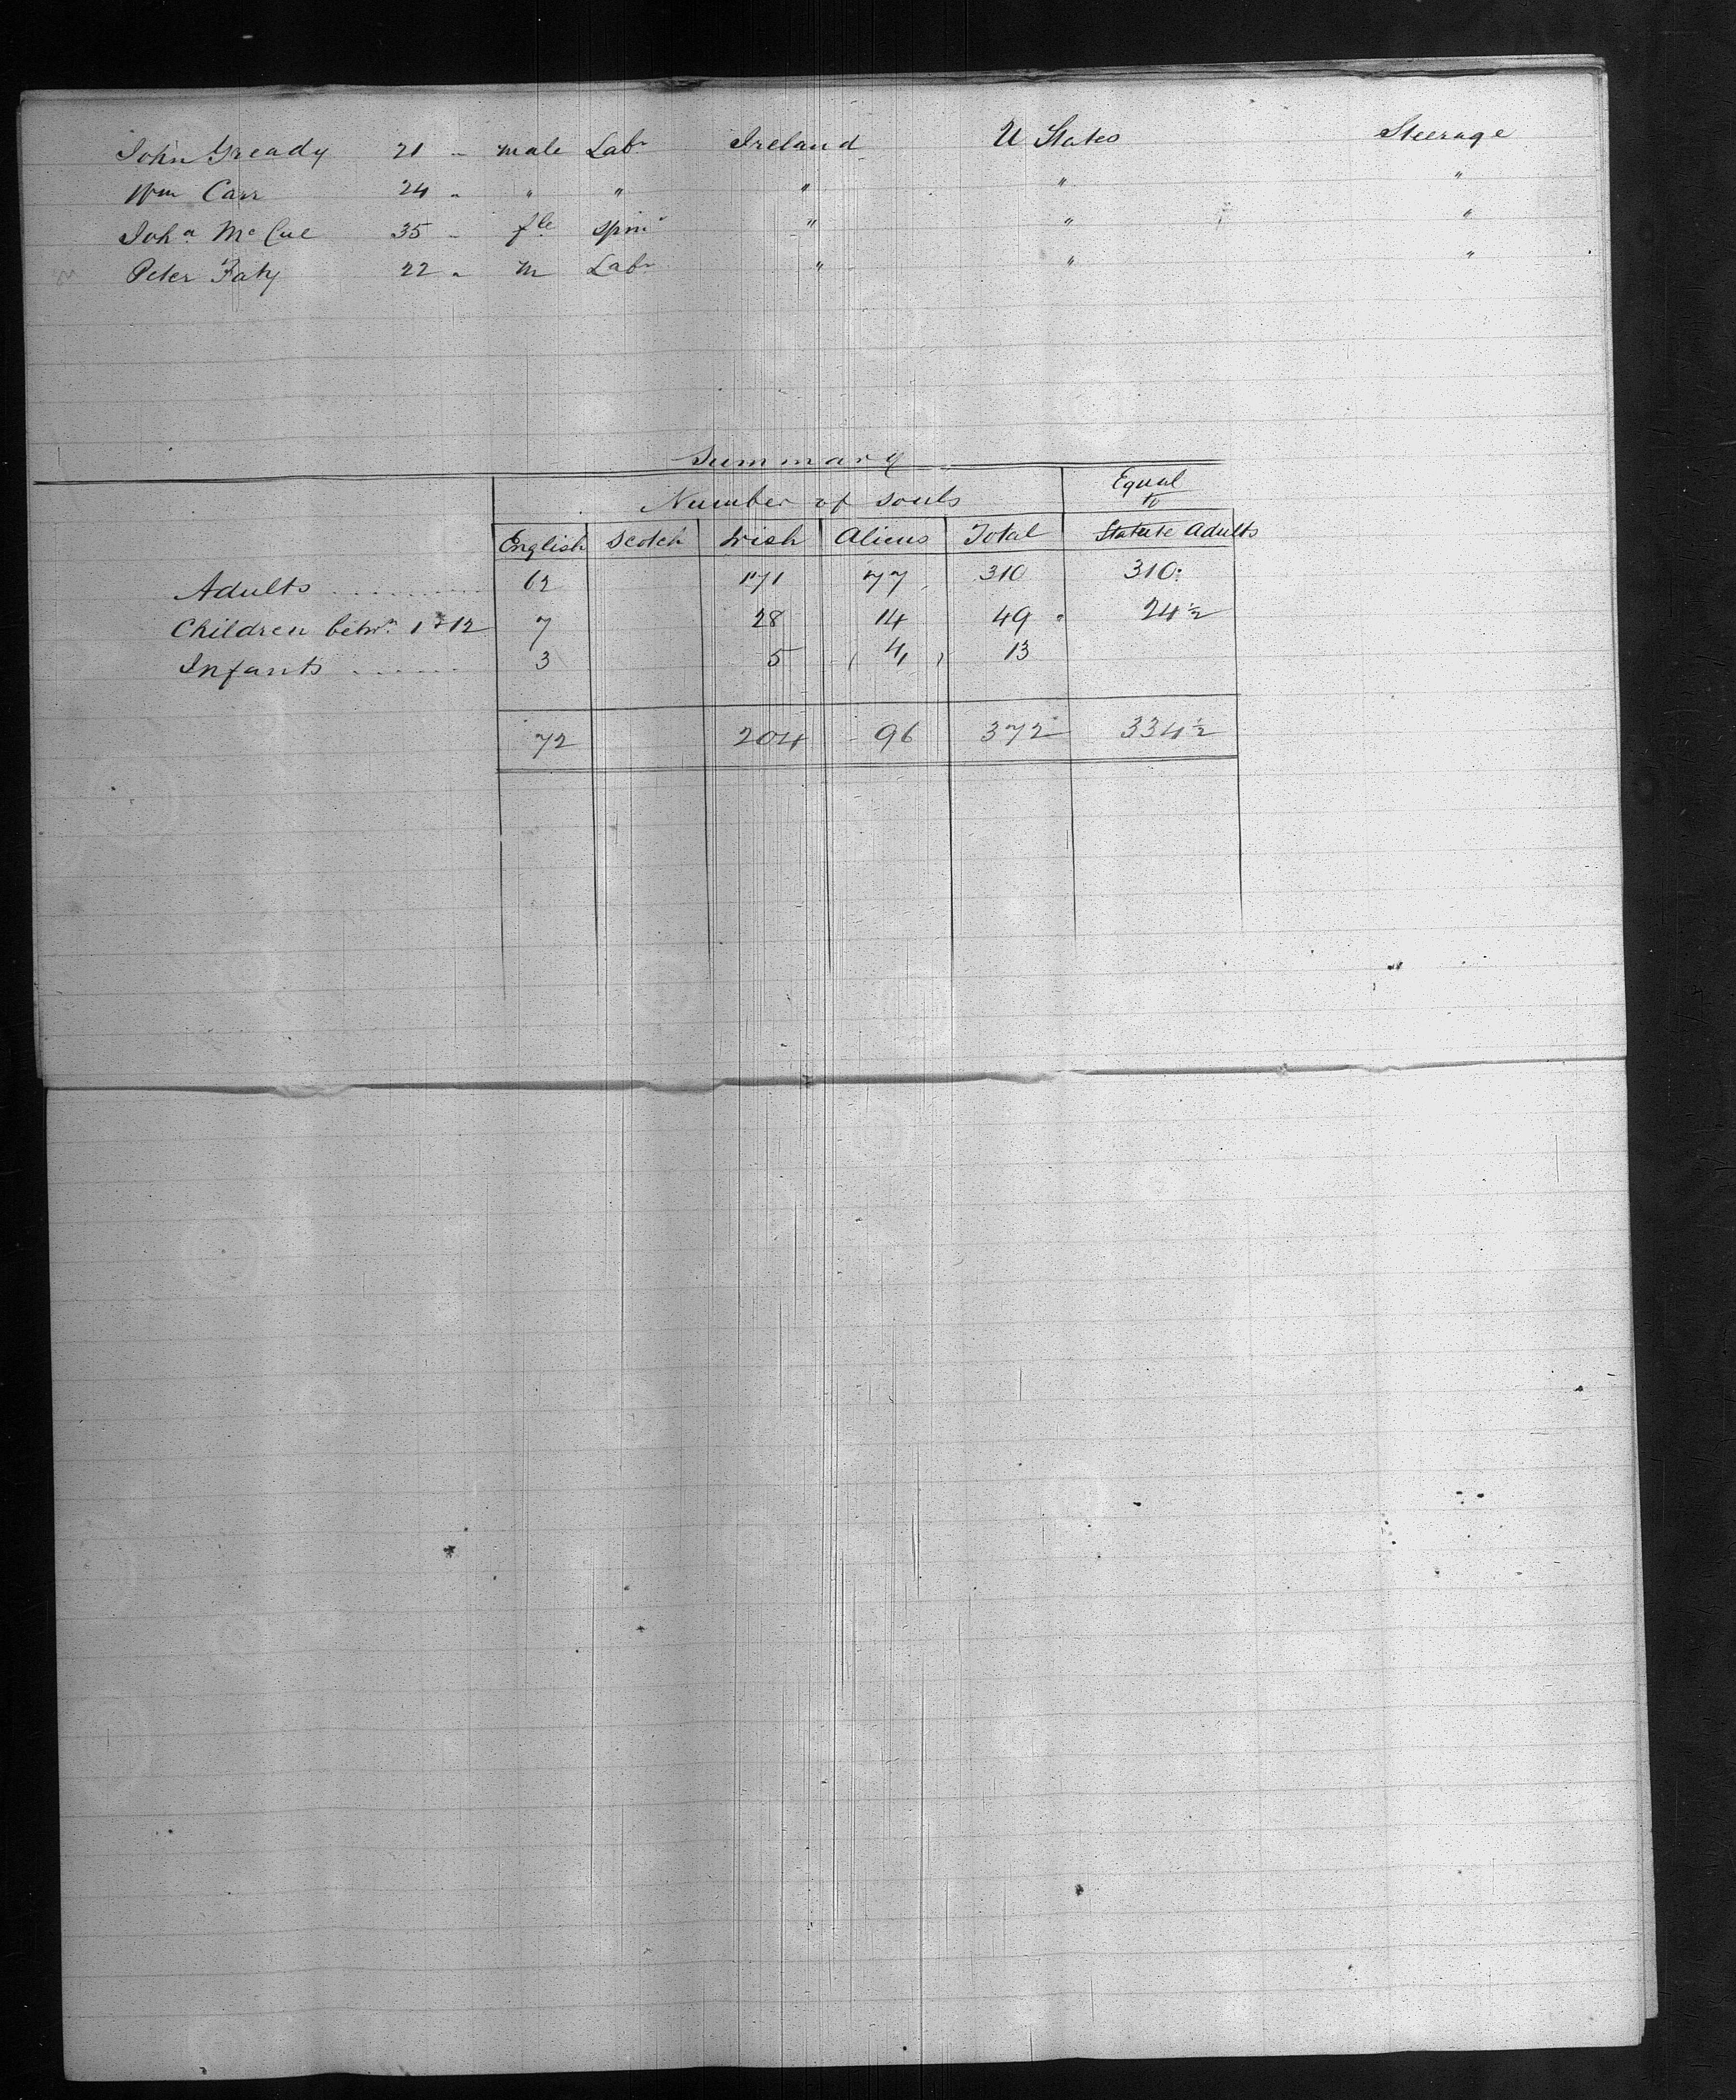 John Gready 21 " male Labr Ireland U States Steerage
Wm Carr 24 " " " " " "
Joha McCue 35 " fle spinr " " "
Peter Faty 22 " m Labr " " "
Summary
Number of souls Equal to
English Scotch Irish Aliens Total Statute Adults
Adults 62 171 77 310 310
Children betwn 1 & 12 7 28 14 49 24½
Infants 3 5 4 13
72 204 96 372 334½